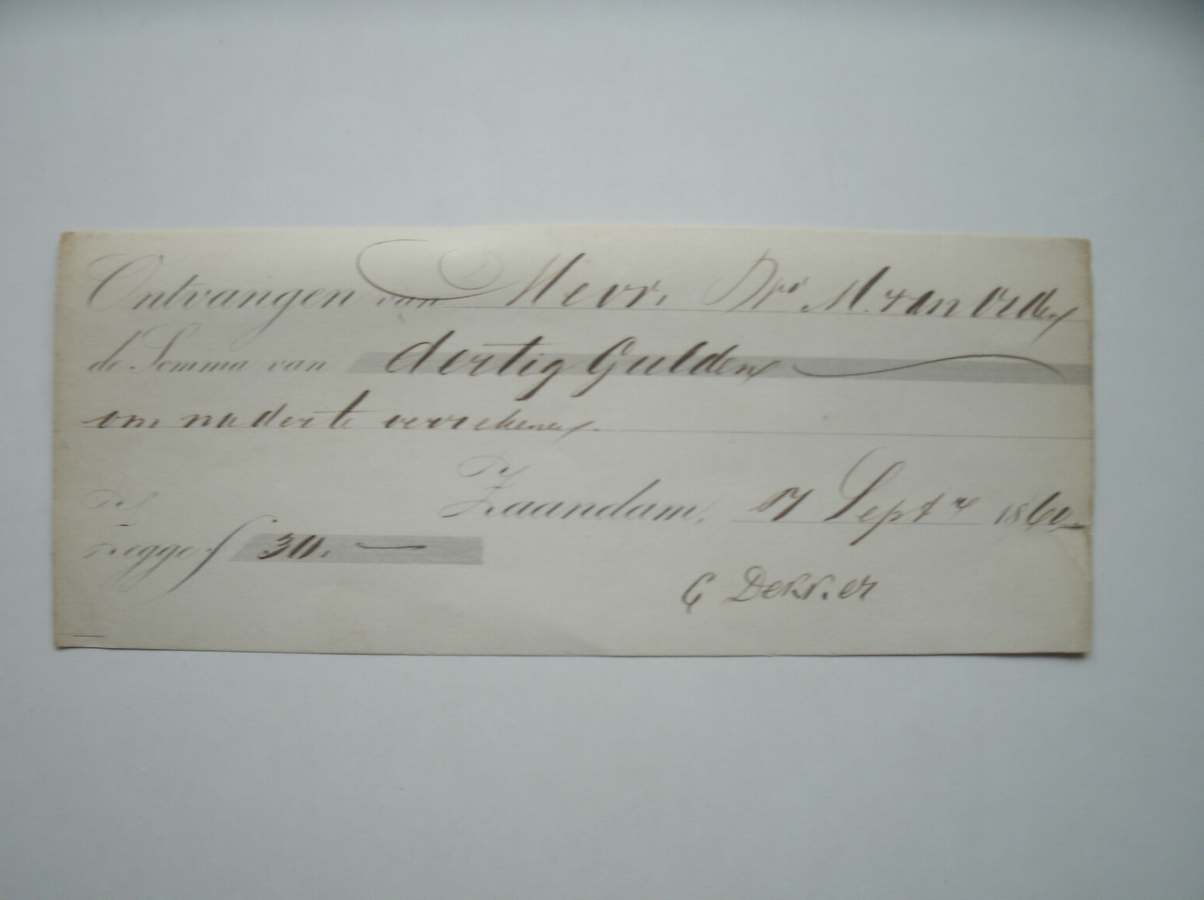 Ontvangen van Mevr. M. van Orden
de Somma van dertig Gulden
om nader te verrekenen.
Zaandam, 17 Sept 1860
Zegge f 30. —
G Dekker